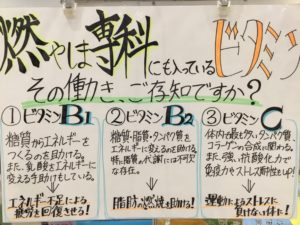 燃やし専科にも入っているビタミン
その働き、ご存知ですか？
①ビタミンB1
糖質からエネルギーを
つくるのを助ける。
また、乳酸をエネルギーに
変える手助けもしている。
エネルギー不足による
疲労を回復させる！
②ビタミンB2
糖質・脂質・タンパク質を
エネルギーに変えるのを助ける。
特に脂質の代謝には不可欠
な存在。
脂肪の燃焼を助ける！
③ビタミンC
体内で最も多いタンパク質
コラーゲンの合成に関わる。
また、強い抗酸化力で
免疫力やストレス耐性をUP!
運動によるストレスに
負けない体に！